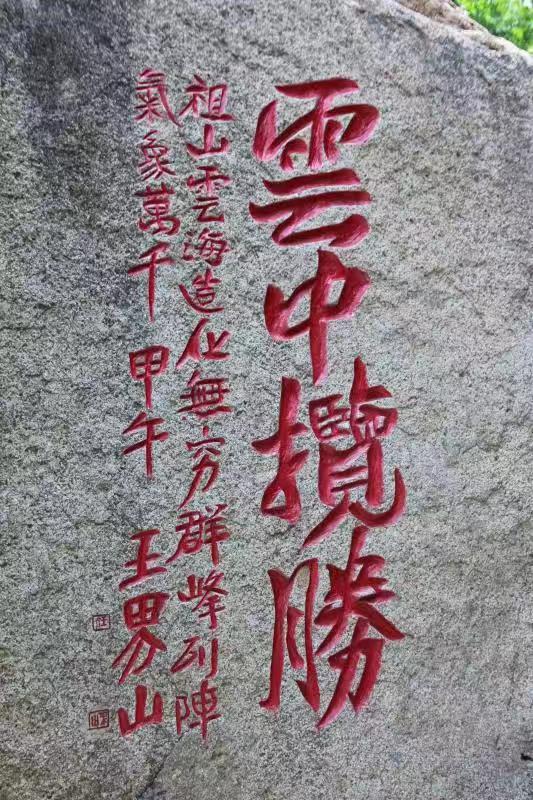 雲中攬勝
祖山雲海造化無穷群峰列陣
氣象萬千 甲午 王界山